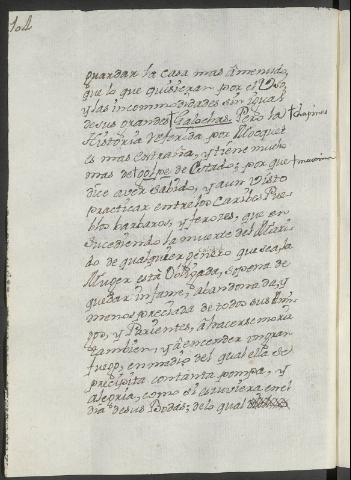 guardar la casa mas amenudo,
que lo que quisieran por el Uso,
y las incommodidades sin igual
de sus grandes Galochas. Pero la + chapines
Historia referida por Mocquet
es mas estraña, y tiene mucho
mas de golpe de Estado; por que +
dice aver sabido, y aun visto
practicar entre los Caribes Pue-
blos barbaros, y feroces, que en
sucediendo la muerte del Mari-
do de qualquier género que sea, la
Muger está obligada, so pena de
quedar infame, abandonada, y
menos preciada de todos sus Ami-
gos, y Parientes, á hacerse morir
tambien, y á encender un gran
fuego, en medio del qual ella se
precipita con tanta pompa, y
alegria, como si estuviera en el
dia de sus Bodas; de lo qual